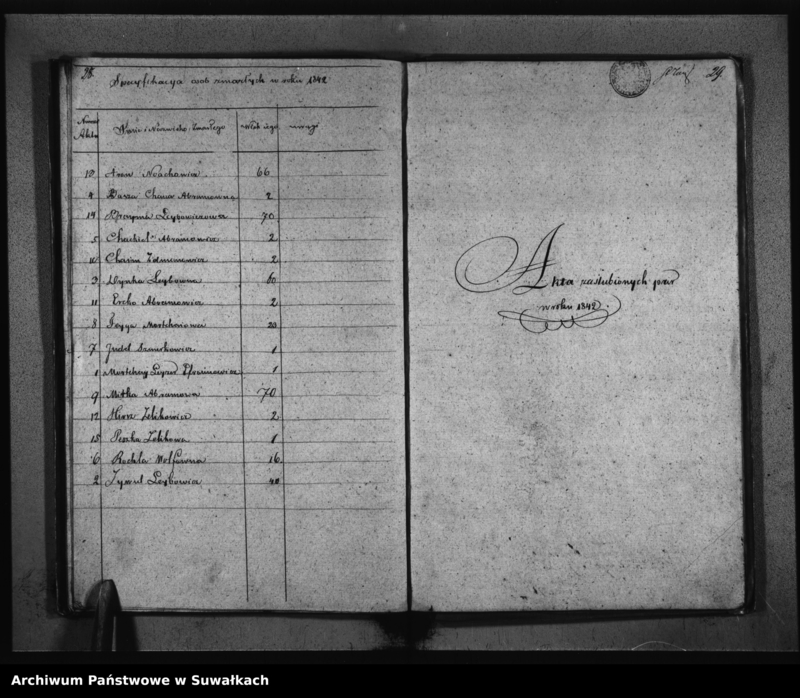 28.
Specyfikacya osób zmarłych w roku 1842
Numer Aktu
Imie i Nazwisko Zmarłego
Wiek iego
uwagi
13 Aron Noachowicz 66
4 Basza Chawa Abramowna 2
14 Leybowiczowa 70
5 Chackiel Abramowicz 2
10 Chaim 2
3 Leybowna 60
11 Ercko Abramowicz 2
8 20
7 Judel Szmuskowicz 1
1 Mortchay Leyzer Efroimowicz 1
9 Mitka Abramowa 70
12 Hirsz Zelikowicz 2
15 Peszka Zelikowa 1
6 Rochla Wolfowna 16
2 Leybowicz 40
29.
Akta zaślubionych par
w roku 1842
Archiwum Państwowe w Suwałkach